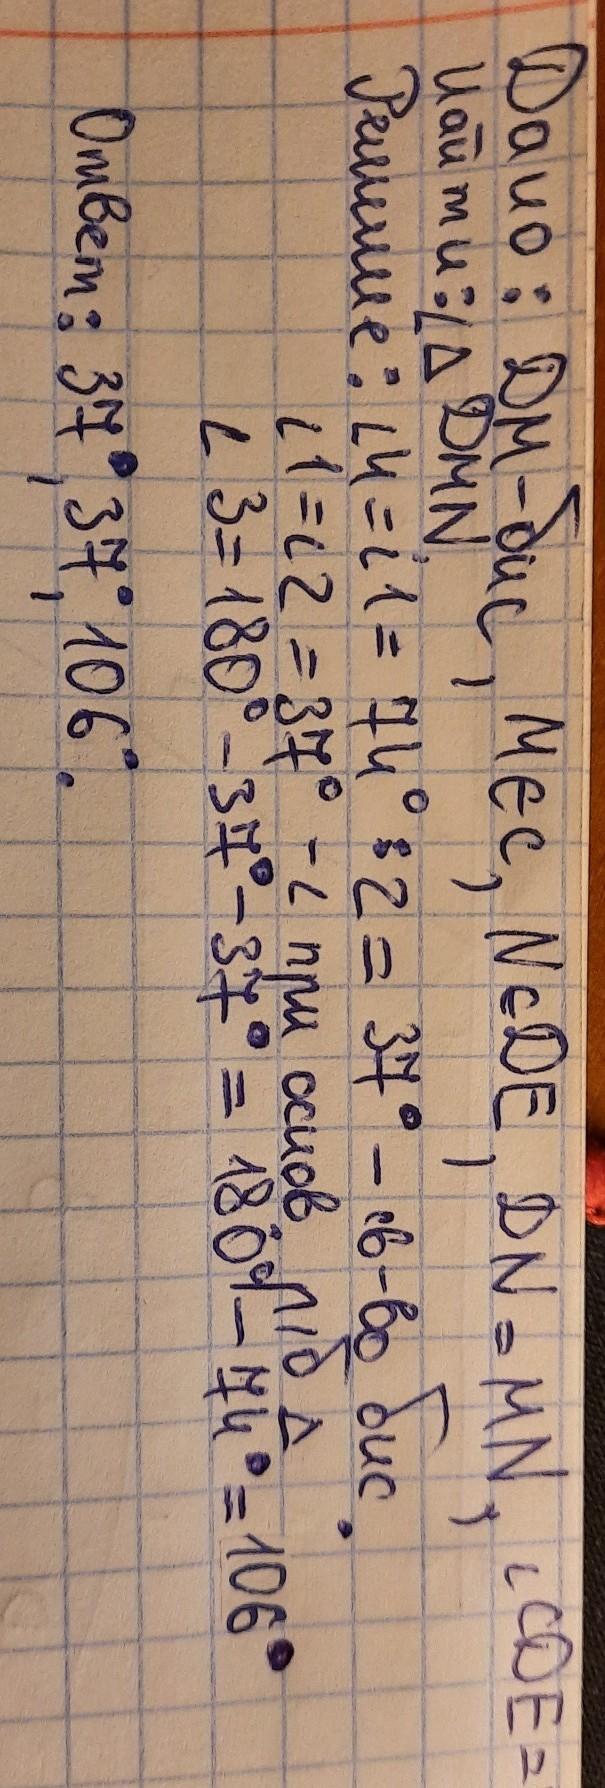 Дано: DM - бис, MЄC, NЄDE, DN = MN, ∠CDE =
Найти: ∠ Δ DMN
Решение: ∠4 = ∠1 = 74° : 2 = 37° - св-во бис.
∠1 = ∠2 = 37° - ∠ при основ р/б Δ
∠3 = 180° - 37° - 37° = 180° - 74° = 106°
Ответ: 37°, 37°, 106°.